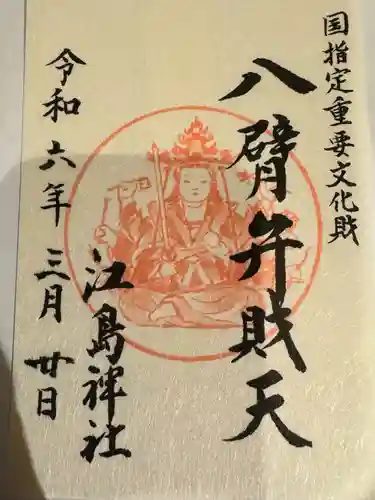 国指定重要文化財
八臂弁財天
江島神社
令和六年三月廿日